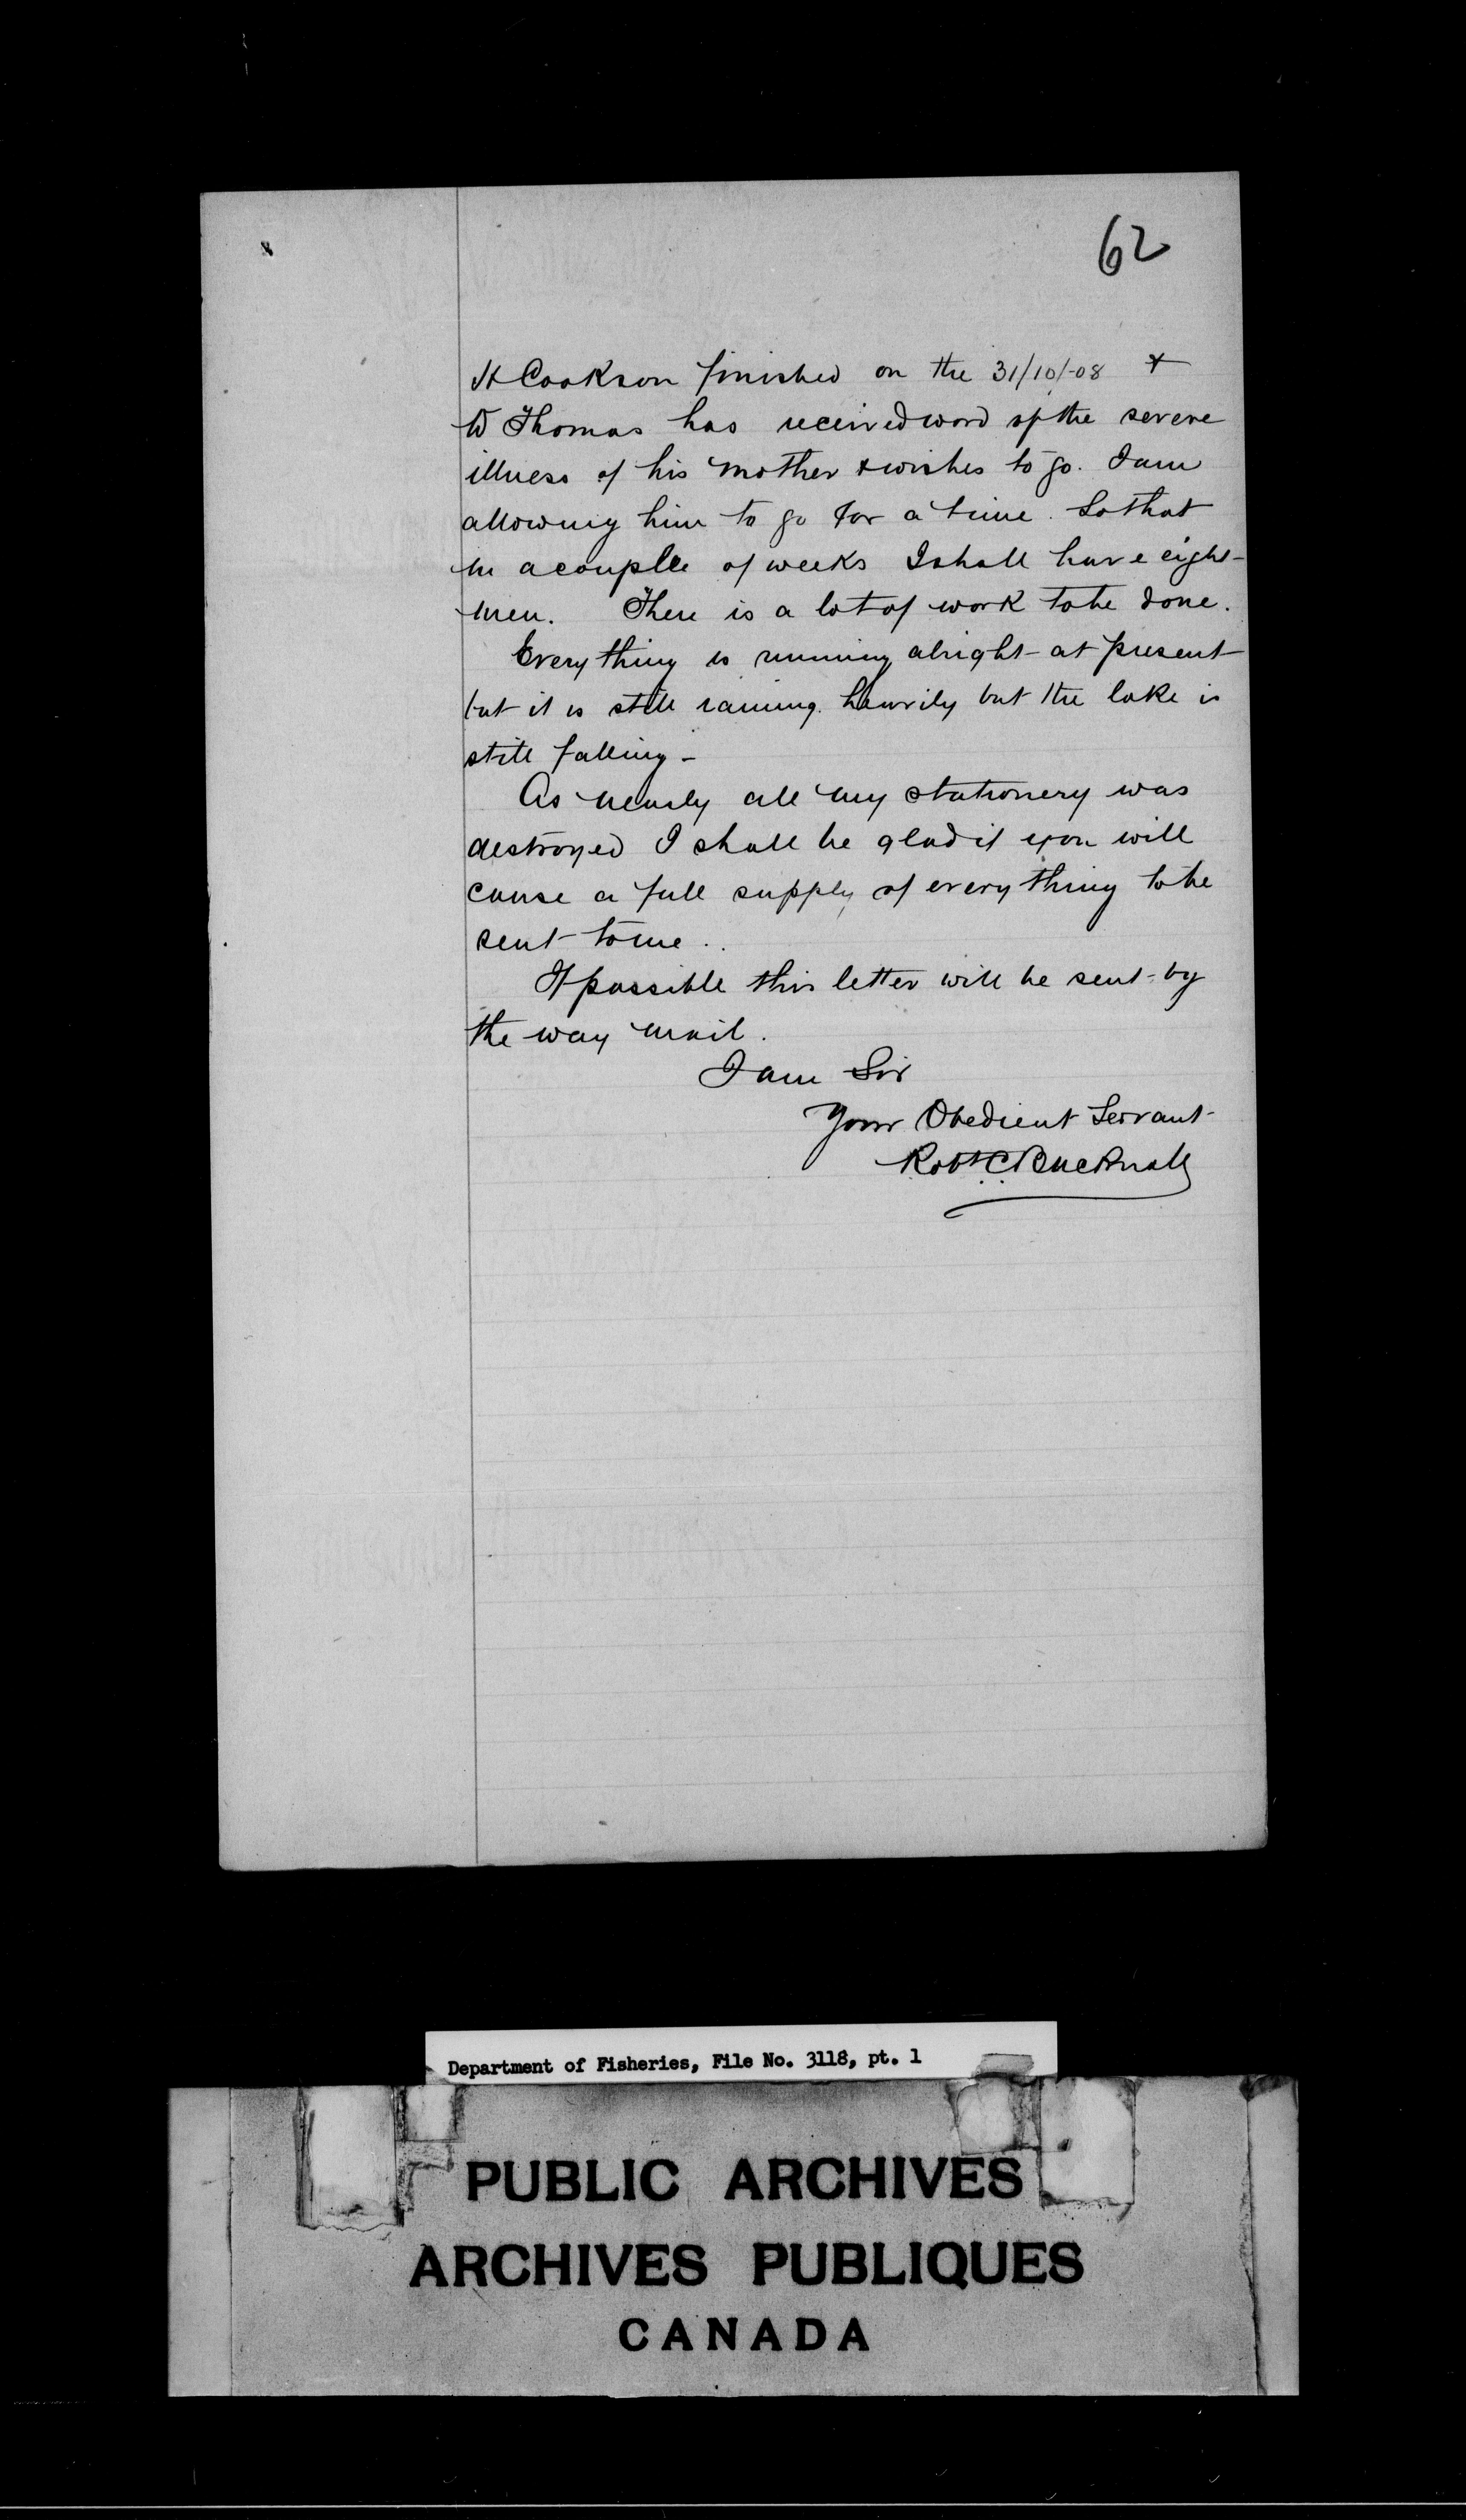 62
H Cookson finished on the 31/10/-08 &
W Thomas has received word of the severe
illness of his mother & wishes to go. I am
allowing him to go for a time. So that
in a couple of weeks I shall have eight
men. There is a lot of work to be done.
Everything is running alright at present
but it is still raining heavily but the lake is
still falling -
As nearly all my stationery was
destroyed I shall be glad if you will
cause a full supply of everything to be
sent to me..
If possible this letter will be sent by
the way mail.
I am Sir
Your Obedient Servant
Robt. C. Bucknall
Department of Fisheries, File No. 3118, pt. 1
PUBLIC ARCHIVES
ARCHIVES PUBLIQUES
CANADA